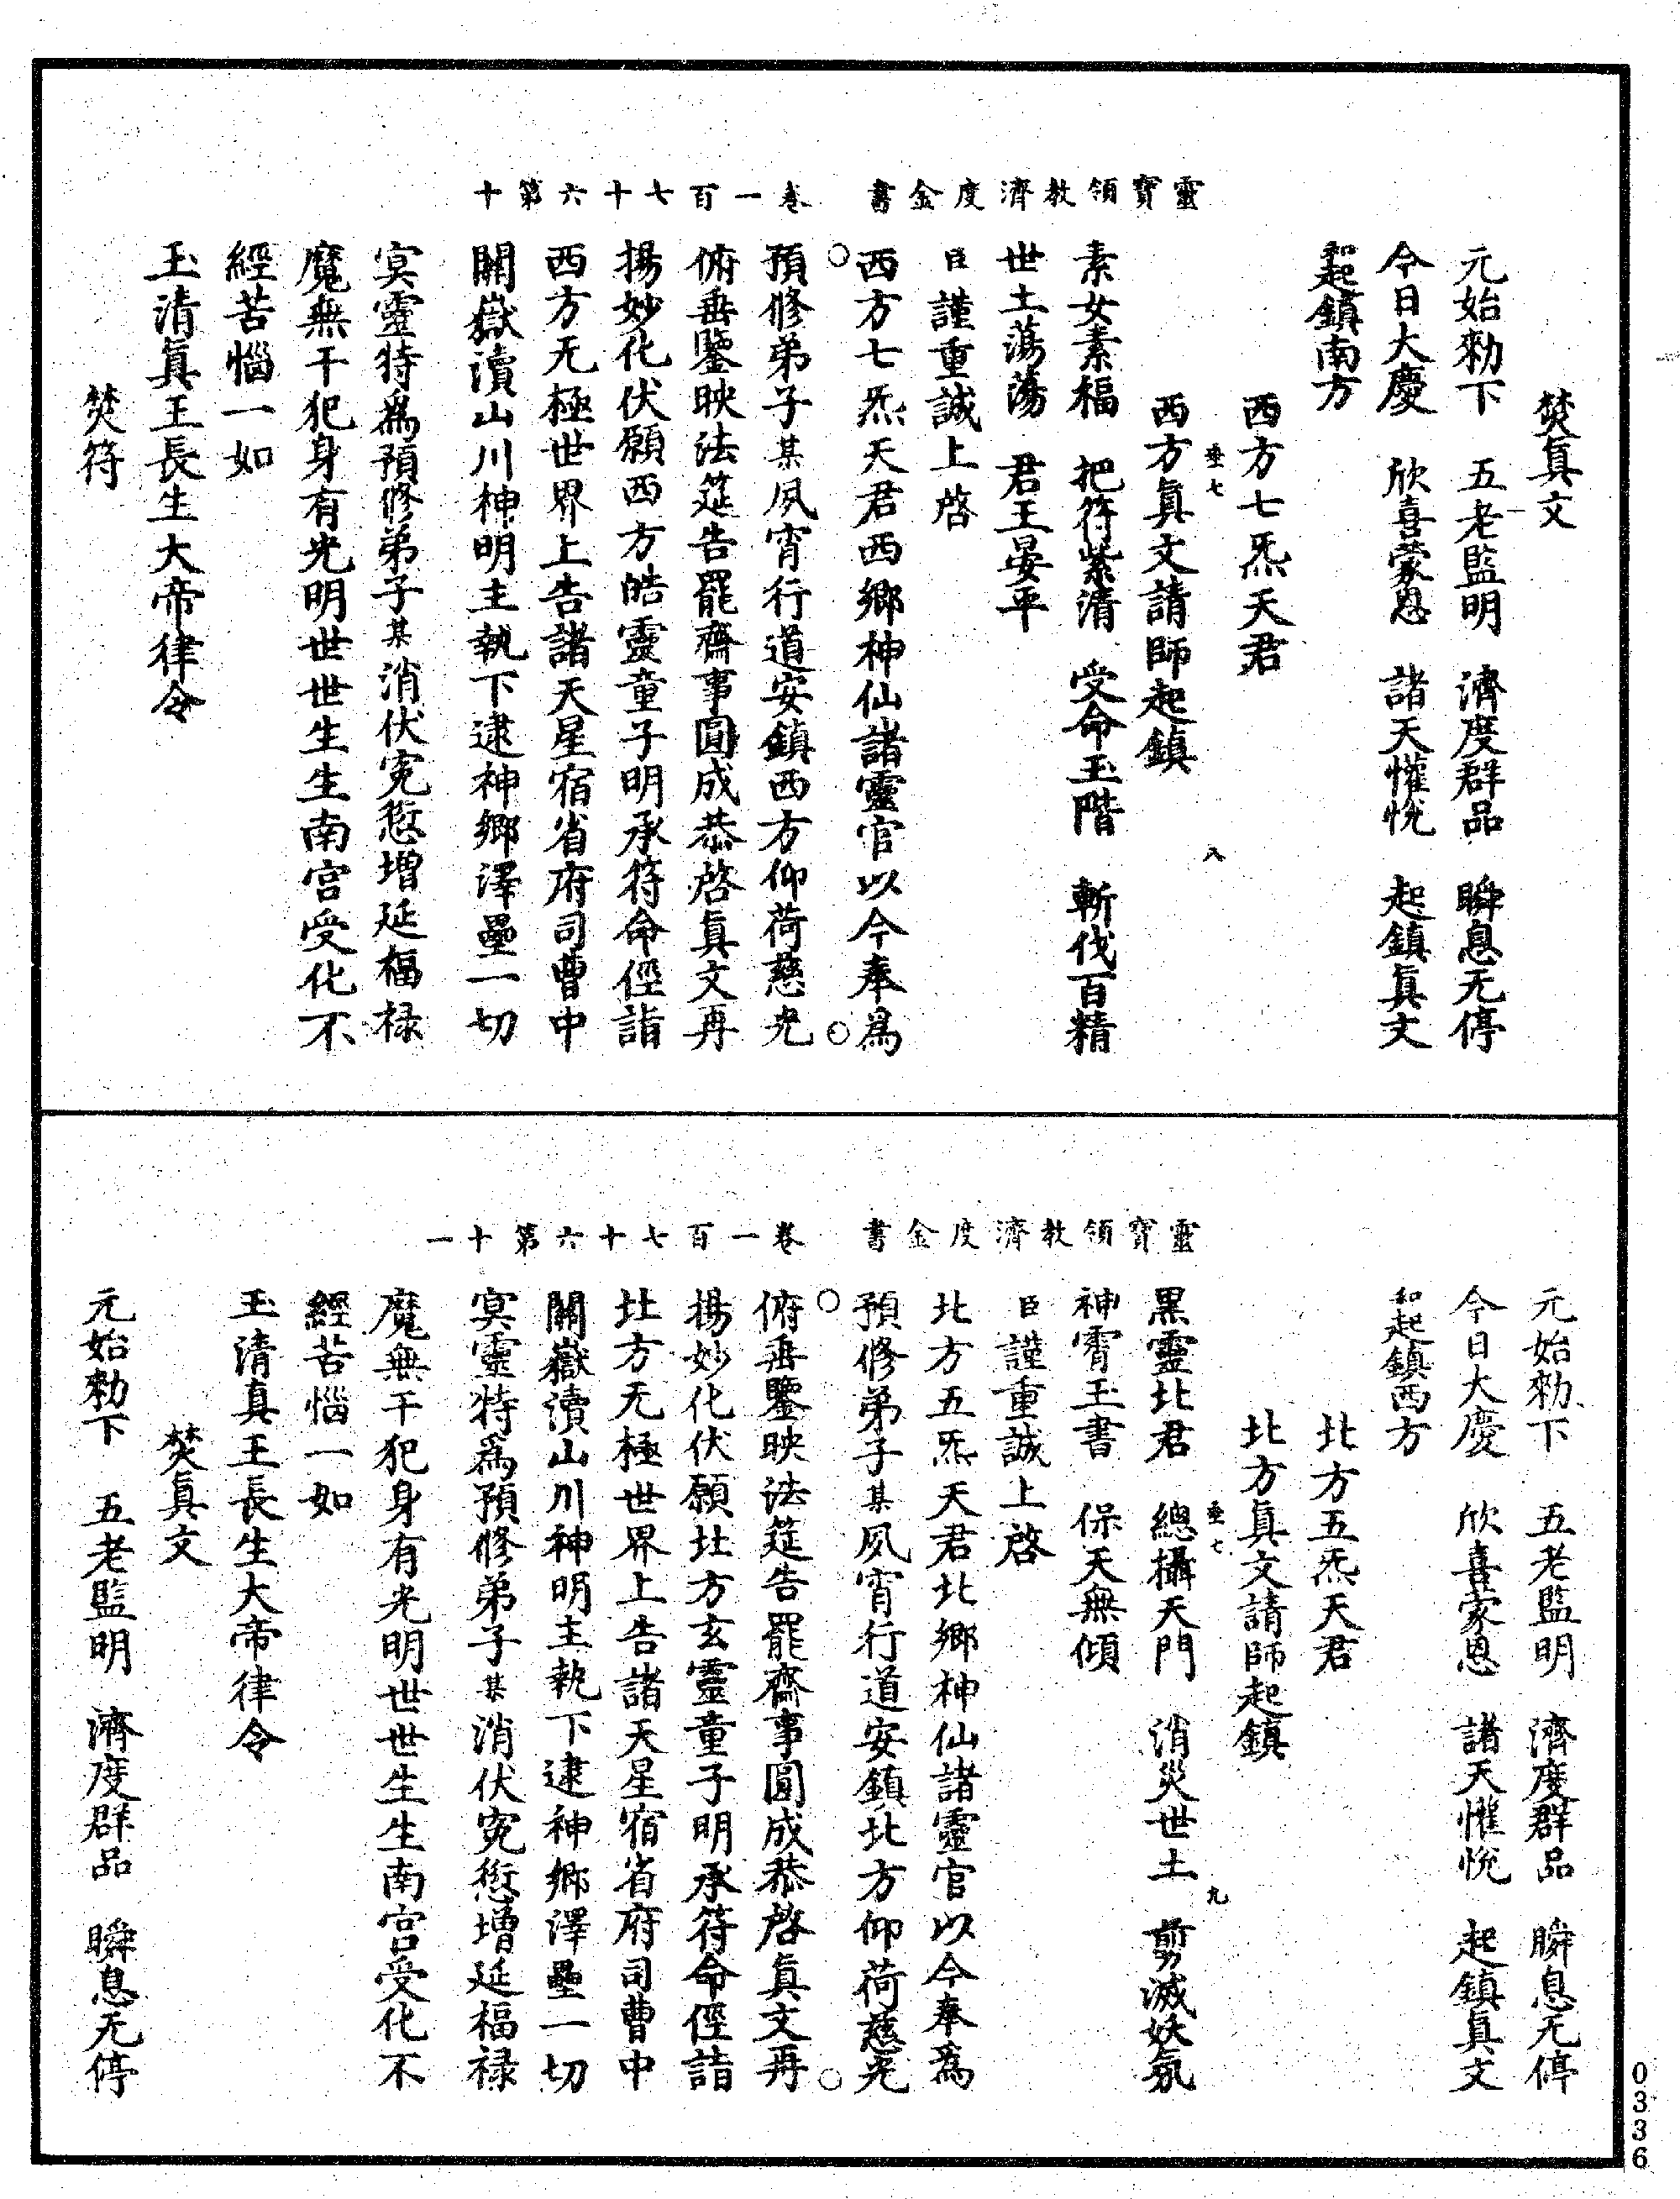 靈寶領教濟度金書　卷一百七十六第十
焚眞文
元始勑下　五老監明　濟度群品　瞬息无停
今日大慶　欣喜蒙恩　諸天懽悅　起鎮眞文
和起鎮南方
西方七炁天君
西方眞文請師起鎮
垂七　八
素女素福　把符紫清　受命玉階　斬伐百精
世土蕩蕩　君王晏平
臣謹重誠上啓
西方七炁天君西鄉神仙諸靈官以今奉爲
預修弟子某夙宵行道安鎮西方仰荷慈光
俯垂鑒映法筵告罷齋事圓成恭啓眞文再
揚妙化伏願西方皓靈童子明承符命俓詣
西方无極世界上告諸天星宿省府司曹中
關嶽瀆山川神明主執下逮神鄉澤壘一切
冥靈特爲預修弟子某消伏寃愆增延福禄
魔無干犯身有光明世世生生南宮受化不
經苦惱一如
玉清眞王長生大帝律令
焚符
靈寶領教濟度金書　卷一百七十六第十一
元始勑下　五老監明　濟度群品　瞬息无停
今日大慶　欣喜蒙恩　諸天懽悅　起鎮眞文
和起鎮西方
北方五炁天君
北方眞文請師起鎮
垂七　九
黑靈北君　總攝天門　消災世土　剪滅妖氛
神霄玉書　保天無傾
臣謹重誠上啓
北方五炁天君北鄉神仙諸靈官以今奉爲
預修弟子某夙宵行道安鎮北方仰荷慈光
俯垂鑒映法筵告罷齋事圓成恭啓眞文再
揚妙化伏願北方玄靈童子明承符命俓詣
北方无極世界上告諸天星宿省府司曹中
關嶽瀆山川神明主執下逮神鄉澤壘一切
冥靈特爲預修弟子某消伏寃愆增延福禄
魔無干犯身有光明世世生生南宮受化不
經苦惱一如
玉清眞王長生大帝律令
焚眞文
元始勑下　五老監明　濟度群品　瞬息无停
0336